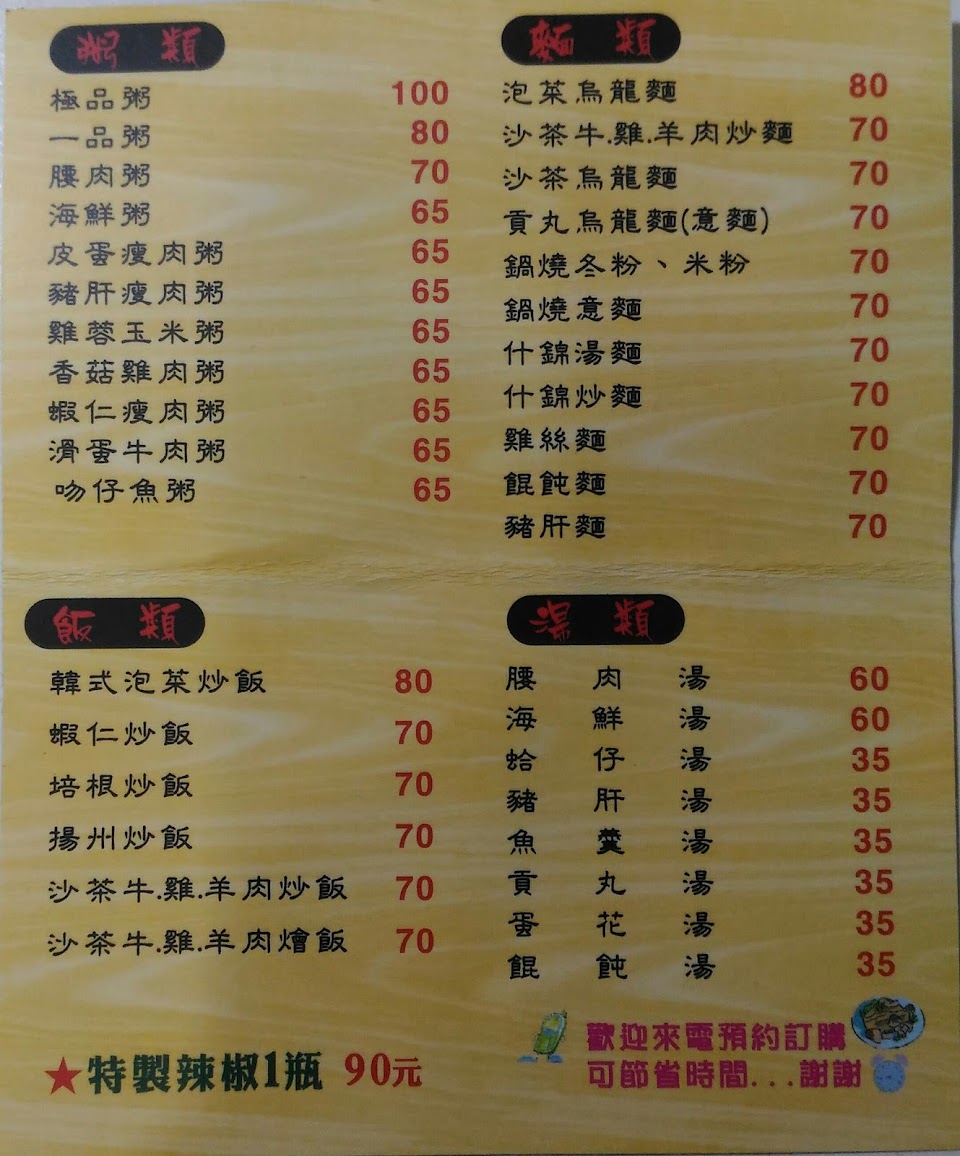 粥 類
極品粥 100
一品粥 80
腰肉粥 70
海鮮粥 65
皮蛋瘦肉粥 65
豬肝瘦肉粥 65
雞蓉玉米粥 65
香菇雞肉粥 65
蝦仁瘦肉粥 65
滑蛋牛肉粥 65
吻仔魚粥 65
麵 類
泡菜烏龍麵 80
沙茶牛.雞.羊肉炒麵 70
沙茶烏龍麵 70
貢丸烏龍麵(意麵) 70
鍋燒冬粉、米粉 70
鍋燒意麵 70
什錦湯麵 70
什錦炒麵 70
雞絲麵 70
餛飩麵 70
豬肝麵 70
飯 類
韓式泡菜炒飯 80
蝦仁炒飯 70
培根炒飯 70
揚州炒飯 70
沙茶牛.雞.羊肉炒飯 70
沙茶牛.雞.羊肉燴飯 70
湯 類
腰肉湯 60
海鮮湯 60
蛤仔湯 35
豬肝湯 35
魚羹湯 35
貢丸湯 35
蛋花湯 35
餛飩湯 35
★特製辣椒1瓶 90元
歡迎來電預約訂購
可節省時間...謝謝